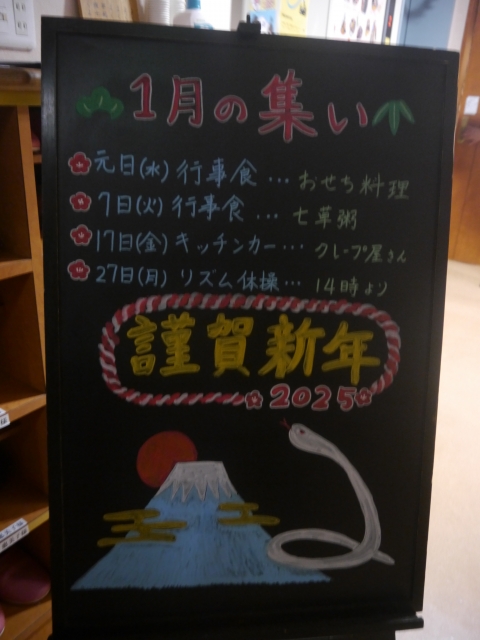 1月の集い
元日(水) 行事食 … おせち料理
7日(火) 行事食 … 七草粥
17日(金) キッチンカー … クレープ屋さん
27日(月) リズム体操 … 14時より
謹賀新年
2025